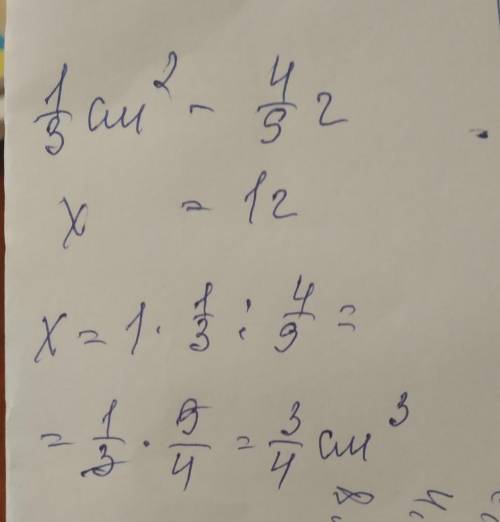 1/3 см² - 4/9 г
x = 1г
x = 1 · 1/3 : 4/9 =
= 1/3 · 9/4 = 3/4 см³